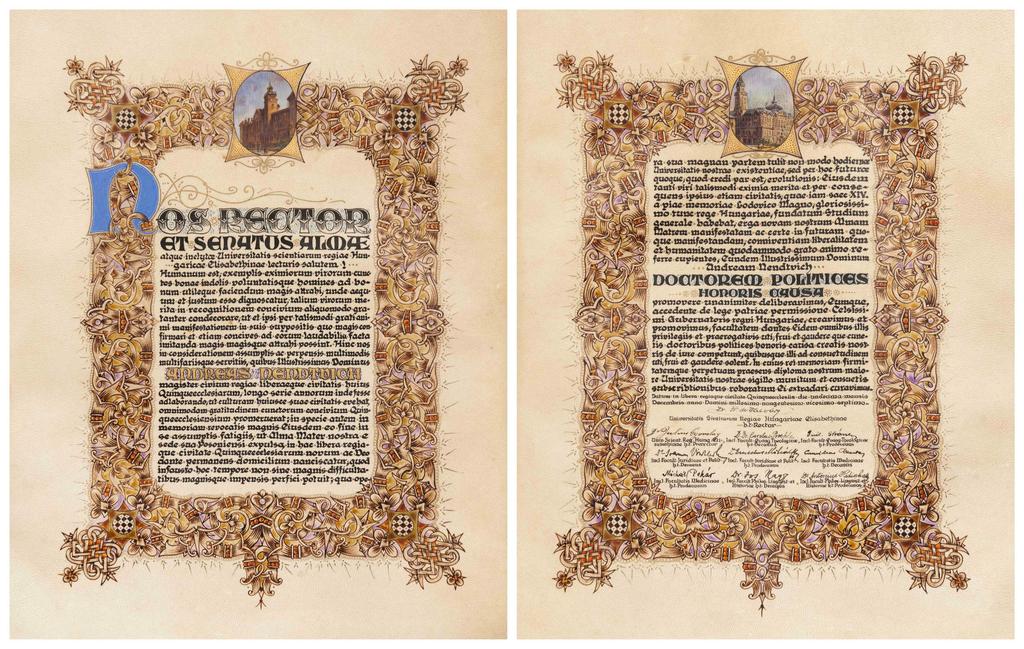 NOS RECTOR
ET SENATUS ALMÆ
atque inclytæ Universitatis scientiarum regiae Hun-
garicae Elisabethinae lecturis salutem!
Humanum est, exemplis eximiorum virorum cunc-
tos bonae indolis voluntatisque homines ad bo-
num utileque faciendum magis attrahi, unde aequ-
um et justum esse dignoscatur, talium virorum me-
rita in recognitionem concivium aliquomodo gra-
tanter condecorare, ut et ipsi per talismodi gratiani-
mi manifestationem in suis suppositis quo magis con-
firmari et etiam concives ad eorum laudabilia facta
imitanda magis magisque attrahi possint. Hinc nos
in considerationem assumptis ac perpensis multimodis
multifariisque servitiis, quibus Illustrissimus Dominus
ANDREAS NENDTVICH
magister civium regiae liberaeque civitatis huius
Quinqueecclesiarum, longo serie annorum indefesse
adlaborando, ut culturam huiusce suae civitatis evehat,
omnimodam gratitudinem cunctorum concivium Quin-
queecclesiensium promeruerat; in specie autem in
memoriam revocatis magnis Eiusdem eo fine in
se assumptis fatigiis, ut Alma Mater nostra e
sede sua Posoniensi expulsa, in hac libera regia-
que civitate Quinqueecclesiarum novum ac Deo
dante permanens domicilium nanciscatur, quod
infausto hoc tempore non sine magnis difficulta-
tibus magnisque impensis perfici potuit; qua ope-
ra sua magnam partem tulit non modo hodiernae
Universitatis nostrae existentiae, sed per hoc futurae
quoque, quod credi par est, evolutionis: Eiusdem
tanti viri talismodi eximia merita et per conse-
quens ipsius etiam civitatis, quae iam saec XIV.
a piae memoriae Lodovico Magno, gloriosissi-
mo tunc rege Hungariae, fundatum Studium
generale habebat, erga novam nostram Almam
Matrem manifestatam ac certe in futuram quo-
que manifestandam, conniventiam liberalitatem
et humanitatem quodammodo grato animo re-
ferre cupientes, Eundem Illustrissimum Dominum
Andream Nendtvich
DOCTOREM POLITICES
HONORIS CAUSA
promovere unanimiter deliberavimus, Eumque,
accedente de lege patriae permissione Celsissi-
mi Gubernatoris regni Hungariae, creavimus et
promovimus, facultatem dantes Eidem omnibus illis
privilegiis et praerogativis uti, frui et gaudere que cunc-
tis doctoribus politices honoris causa creatis nost-
ris de iure competunt, quibusque illi ad consuetudinem
uti, frui et gaudere solent. In cuius rei memoriam firmi-
tatemque perpetuam praesens diploma nostrum maio-
re Universitatis nostrae sigillo munitum et consuetis
subscribtionibus roboratum Ei extradari curavimus.
Datum in libera regiaque civitate Quinqueecclesiis die undecima mensis
Decembris anno Domini millesimo nongentesimo vicesimo septimo.
Universitatis Scientiarum Regiae Hungaricae Elisabethinae
h.t. Rector